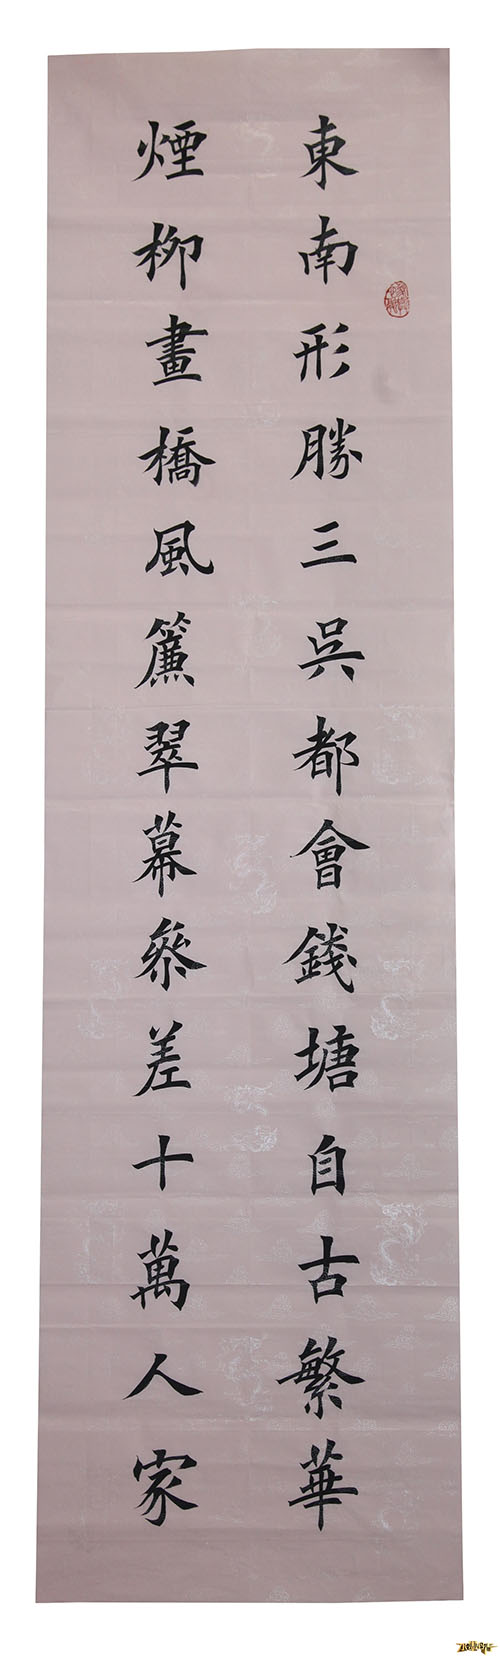 東南形勝三吳都會錢塘自古繁華
煙柳畫橋風簾翠幕參差十萬人家